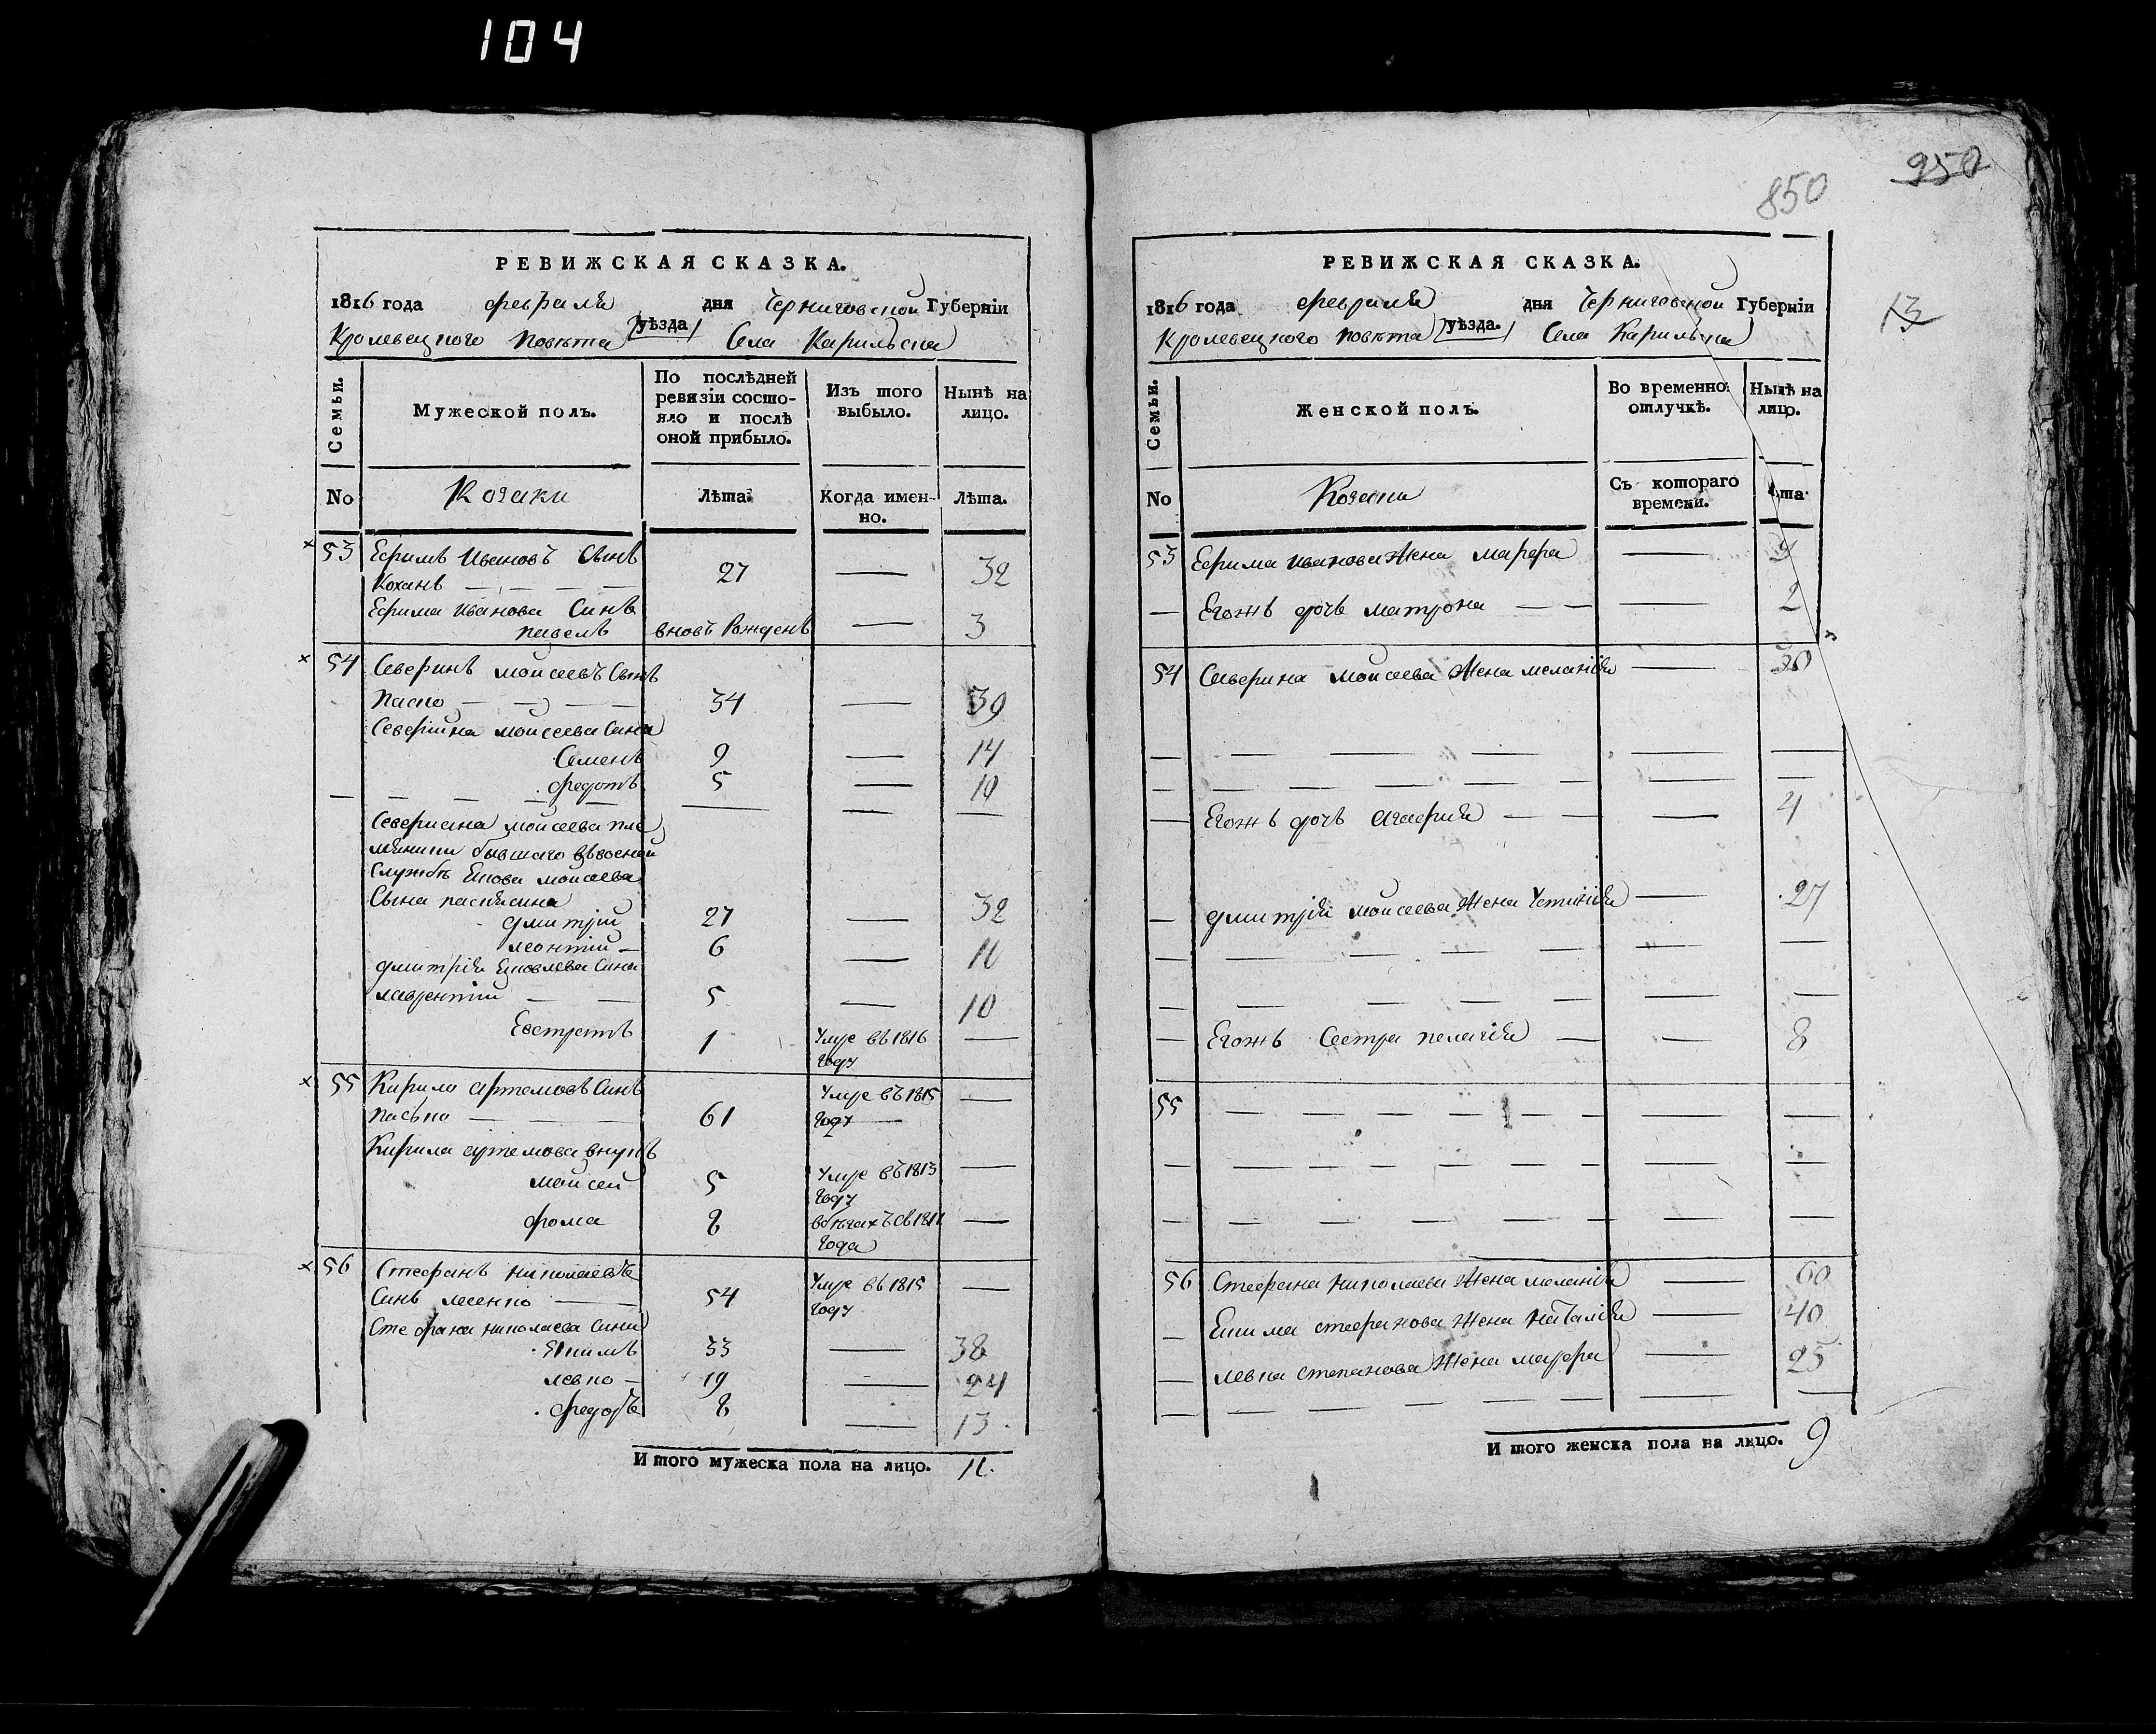 104
РЕВИЖСКАЯ СКАЗКА.
1816 года февраля дня Черниговской Губерніи
Кролевецкого повѣта уѣзда Села Карильска
Семьи.
Мужеской полъ.
По послѣдней ревизіи состо-
яло и послѣ
оной прибыло.
Изъ того
выбыло.
Нынѣ на
лицо.
No
Козаки
Лѣта.
Когда имен-
но.
Лѣта.
53 Ефимъ Ивановъ Сынъ
Коханъ — — — 27 — 32
Ефима Иванова Синъ
павелъ вновъ Рожденъ — 3
54 Северинъ моисеевъ Сынъ
Паско — — — — 34 — 39
Северина моисеева Сини
Семенъ 9 — 14
федотъ 5 — 10
— — — — — — — —
Севериана моисеева пле
мянники бывшаго въвоенной
Службѣ Якова моисеева
Сына
дмитрій 27 — 32
леонтій — 6 — 11
дмитрія Яковлева Сини
лаврентій — — 5 — 10
Евстратъ 1 Умре въ 1816 —
году
55 Кирило артемовъ Синъ Умре въ 1815 —
Пасько — — 61 году
Кирила артемова внуки
моисей 5 Умре въ 1813 —
году
фома 8 вбѣгахъ съ 1811 —
года
56 Стефанъ николаевъ
Синъ лесенко — 54 Умре въ 1815 —
году
Стефана николаева Сини
Якимъ 33 — 38
левко — 19 — 24
федоръ 8 — 13
И того мужеска пола на лицо. 11.
850
950
13
РЕВИЖСКАЯ СКАЗКА.
1816 года февраля дня Черниговской Губерніи
Кролевецкого повѣта уѣзда. Села Карильска
Семьи.
Женской полъ.
Во временно:
отлучкѣ.
Нынѣ на
лицо.
No
Козаки
Съ котораго
времени.
53 Ефима иванова Жена марфа —
— Егожъ дочъ матрона — — — 2
54 Северина моисеева Жена меланія — 30
— — — — — — —
— — — — — — — —
— Егожъ дочъ агафия — — — 4
— дмитрія моисеева Жена Устинія — 27
— — — — — — —
— — — — — — —
— Егожъ Сестра пелагія — — 8
55 — — — — — — — —
— — — — — — — —
— — — — — — — —
56 Стефана николаева Жена меланія — 60
— Якима стефанова Жена наталія — 40
— левка степанова Жена марфа — 25
— — — — — — — —
И того женска пола на лицо. 9